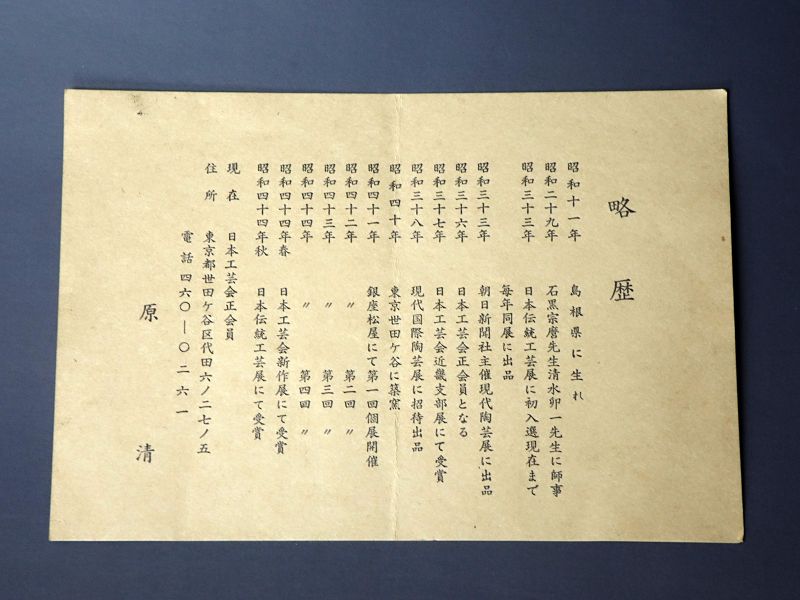 略歴
昭和十一年 島根県に生れ
昭和二十九年 石黒宗麿先生清水卯一先生に師事
昭和三十三年 日本伝統工芸展に初入選現在まで
毎年同展に出品
昭和三十三年 朝日新聞社主催現代陶芸展に出品
昭和三十六年 日本工芸会正会員となる
昭和三十七年 日本工芸会近畿支部展にて受賞
昭和三十八年 現代国際陶芸展に招待出品
昭和四十年 東京世田ケ谷に築窯
昭和四十一年 銀座松屋にて第一回個展開催
昭和四十二年 〃 第二回 〃
昭和四十三年 〃 第三回 〃
昭和四十四年 〃 第四回 〃
昭和四十四年春 日本工芸会新作展にて受賞
昭和四十四年秋 日本伝統工芸展にて受賞
現在 日本工芸会正会員
住所 東京都世田ケ谷区代田六ノ二七ノ五
電話四六〇―〇二六一
原清